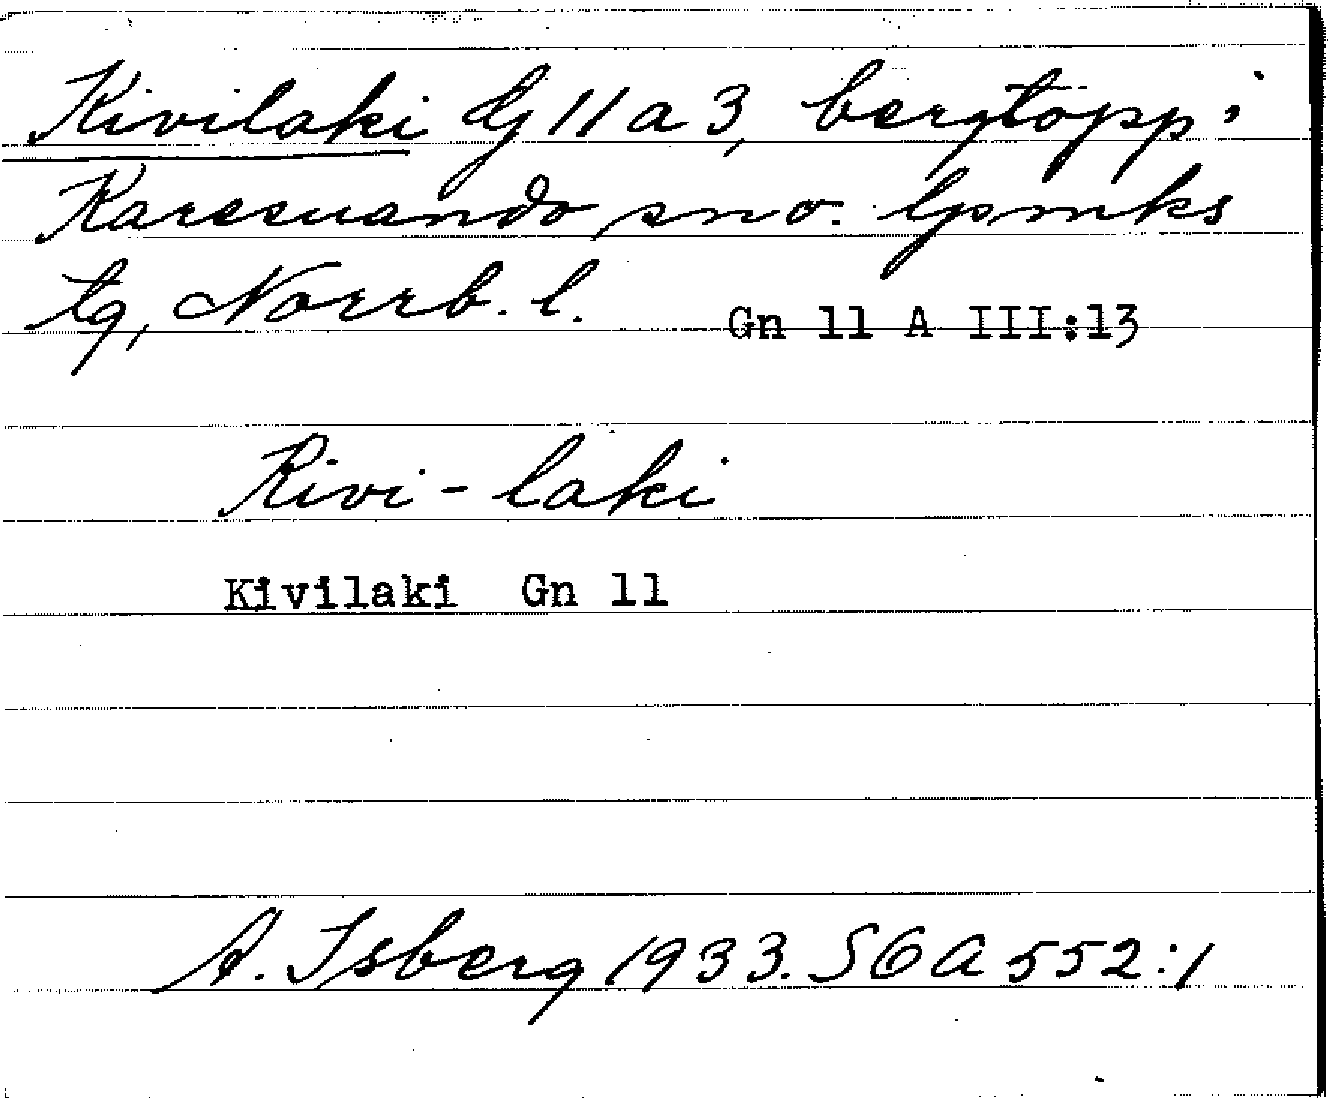 Kivilaki Lj 11 a 3, bergtopp i
Karesuando sn o. lpmks
tg, Norrb. l. Gn 11 A III:13
Kivi-laki
Kivilaki Gn 11
A. Isberg 1933. SOA 552:1